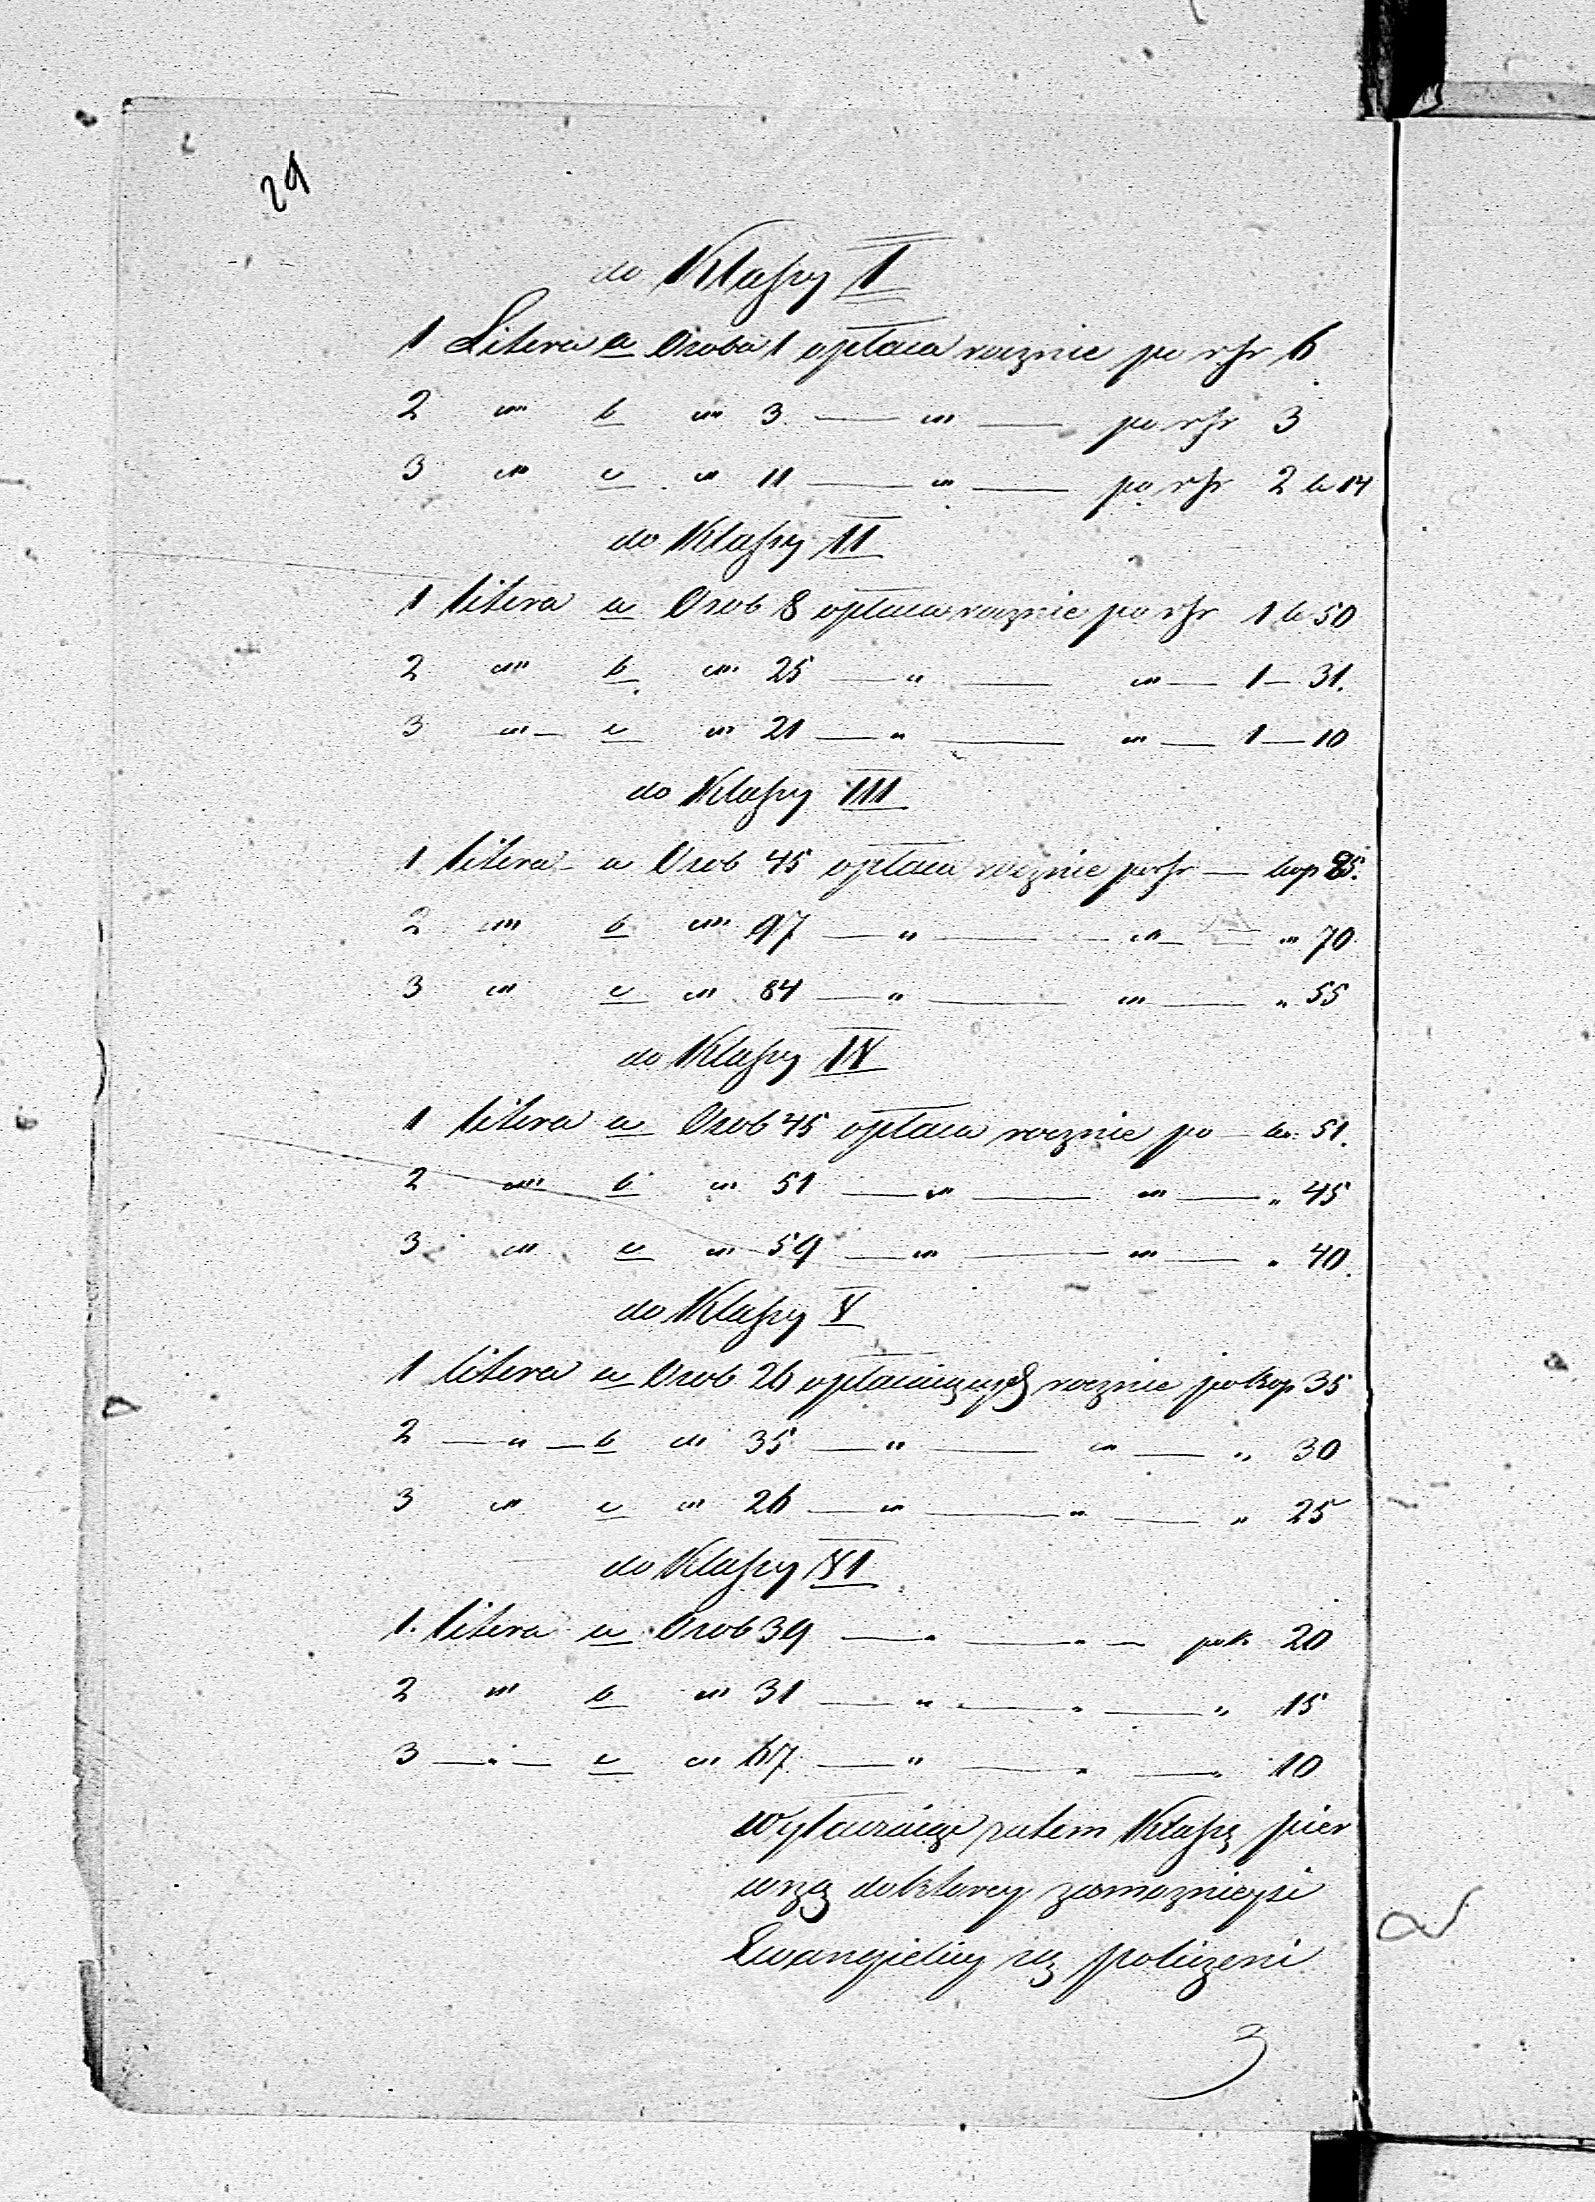 29
do Klassy I
1 Litera a Osoba 1 opłaca rocznie po rsr 6
2 „ b „ 3 — „ — po rsr 3
3 „ c „ 11 — „ — po rsr 2 k 14
do Klassy II
1 litera a Osob 8 opłaca rocznie po rsr 1 k 50
2 „ b „ 25 — „ — „ — 1 — 31.
3 „ — c „ 21 — „ — „ — 1 — 10
do Klassy III
1 litera - a Osob 45 opłaca rocznie po rsr — kop 85.
2 „ b „ 97 — „ — „ — „ 70
3 „ c „ 84 — „ — „ — „ 55
do Klassy IV
1 litera a Osob 45 opłaca rocznie po — k. 51.
2 „ b „ 51 — „ — „ — „ 45
3 „ c „ 59 — „ — „ — „ 40.
do Klassy V
1 litera a Osob 26 opłacaiących rocznie po kop 35
2 — „ — b „ 35 — „ — „ — „ 30
3 „ c „ 26 — „ — „ — „ 25
do Klassy VI
1. litera a Osob 39 — „ — „ — po k 20
2 „ b „ 31 — „ — „ — „ 15
3 — „ — c „ 67 — „ — „ — „ 10
Wyłaczaiąc zatem Klassę pier
wszą do ktorey zamoznieysi
Ewangielicy są policzeni
3